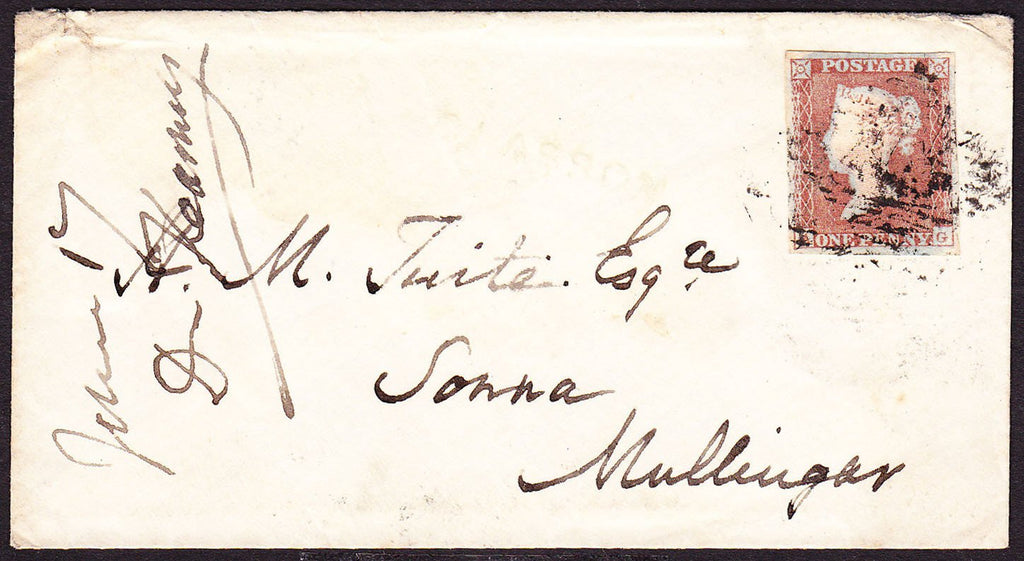 POSTAGE
ONE PENNY G
H. M. Tuite. Esqre
Sonna
Mullingar